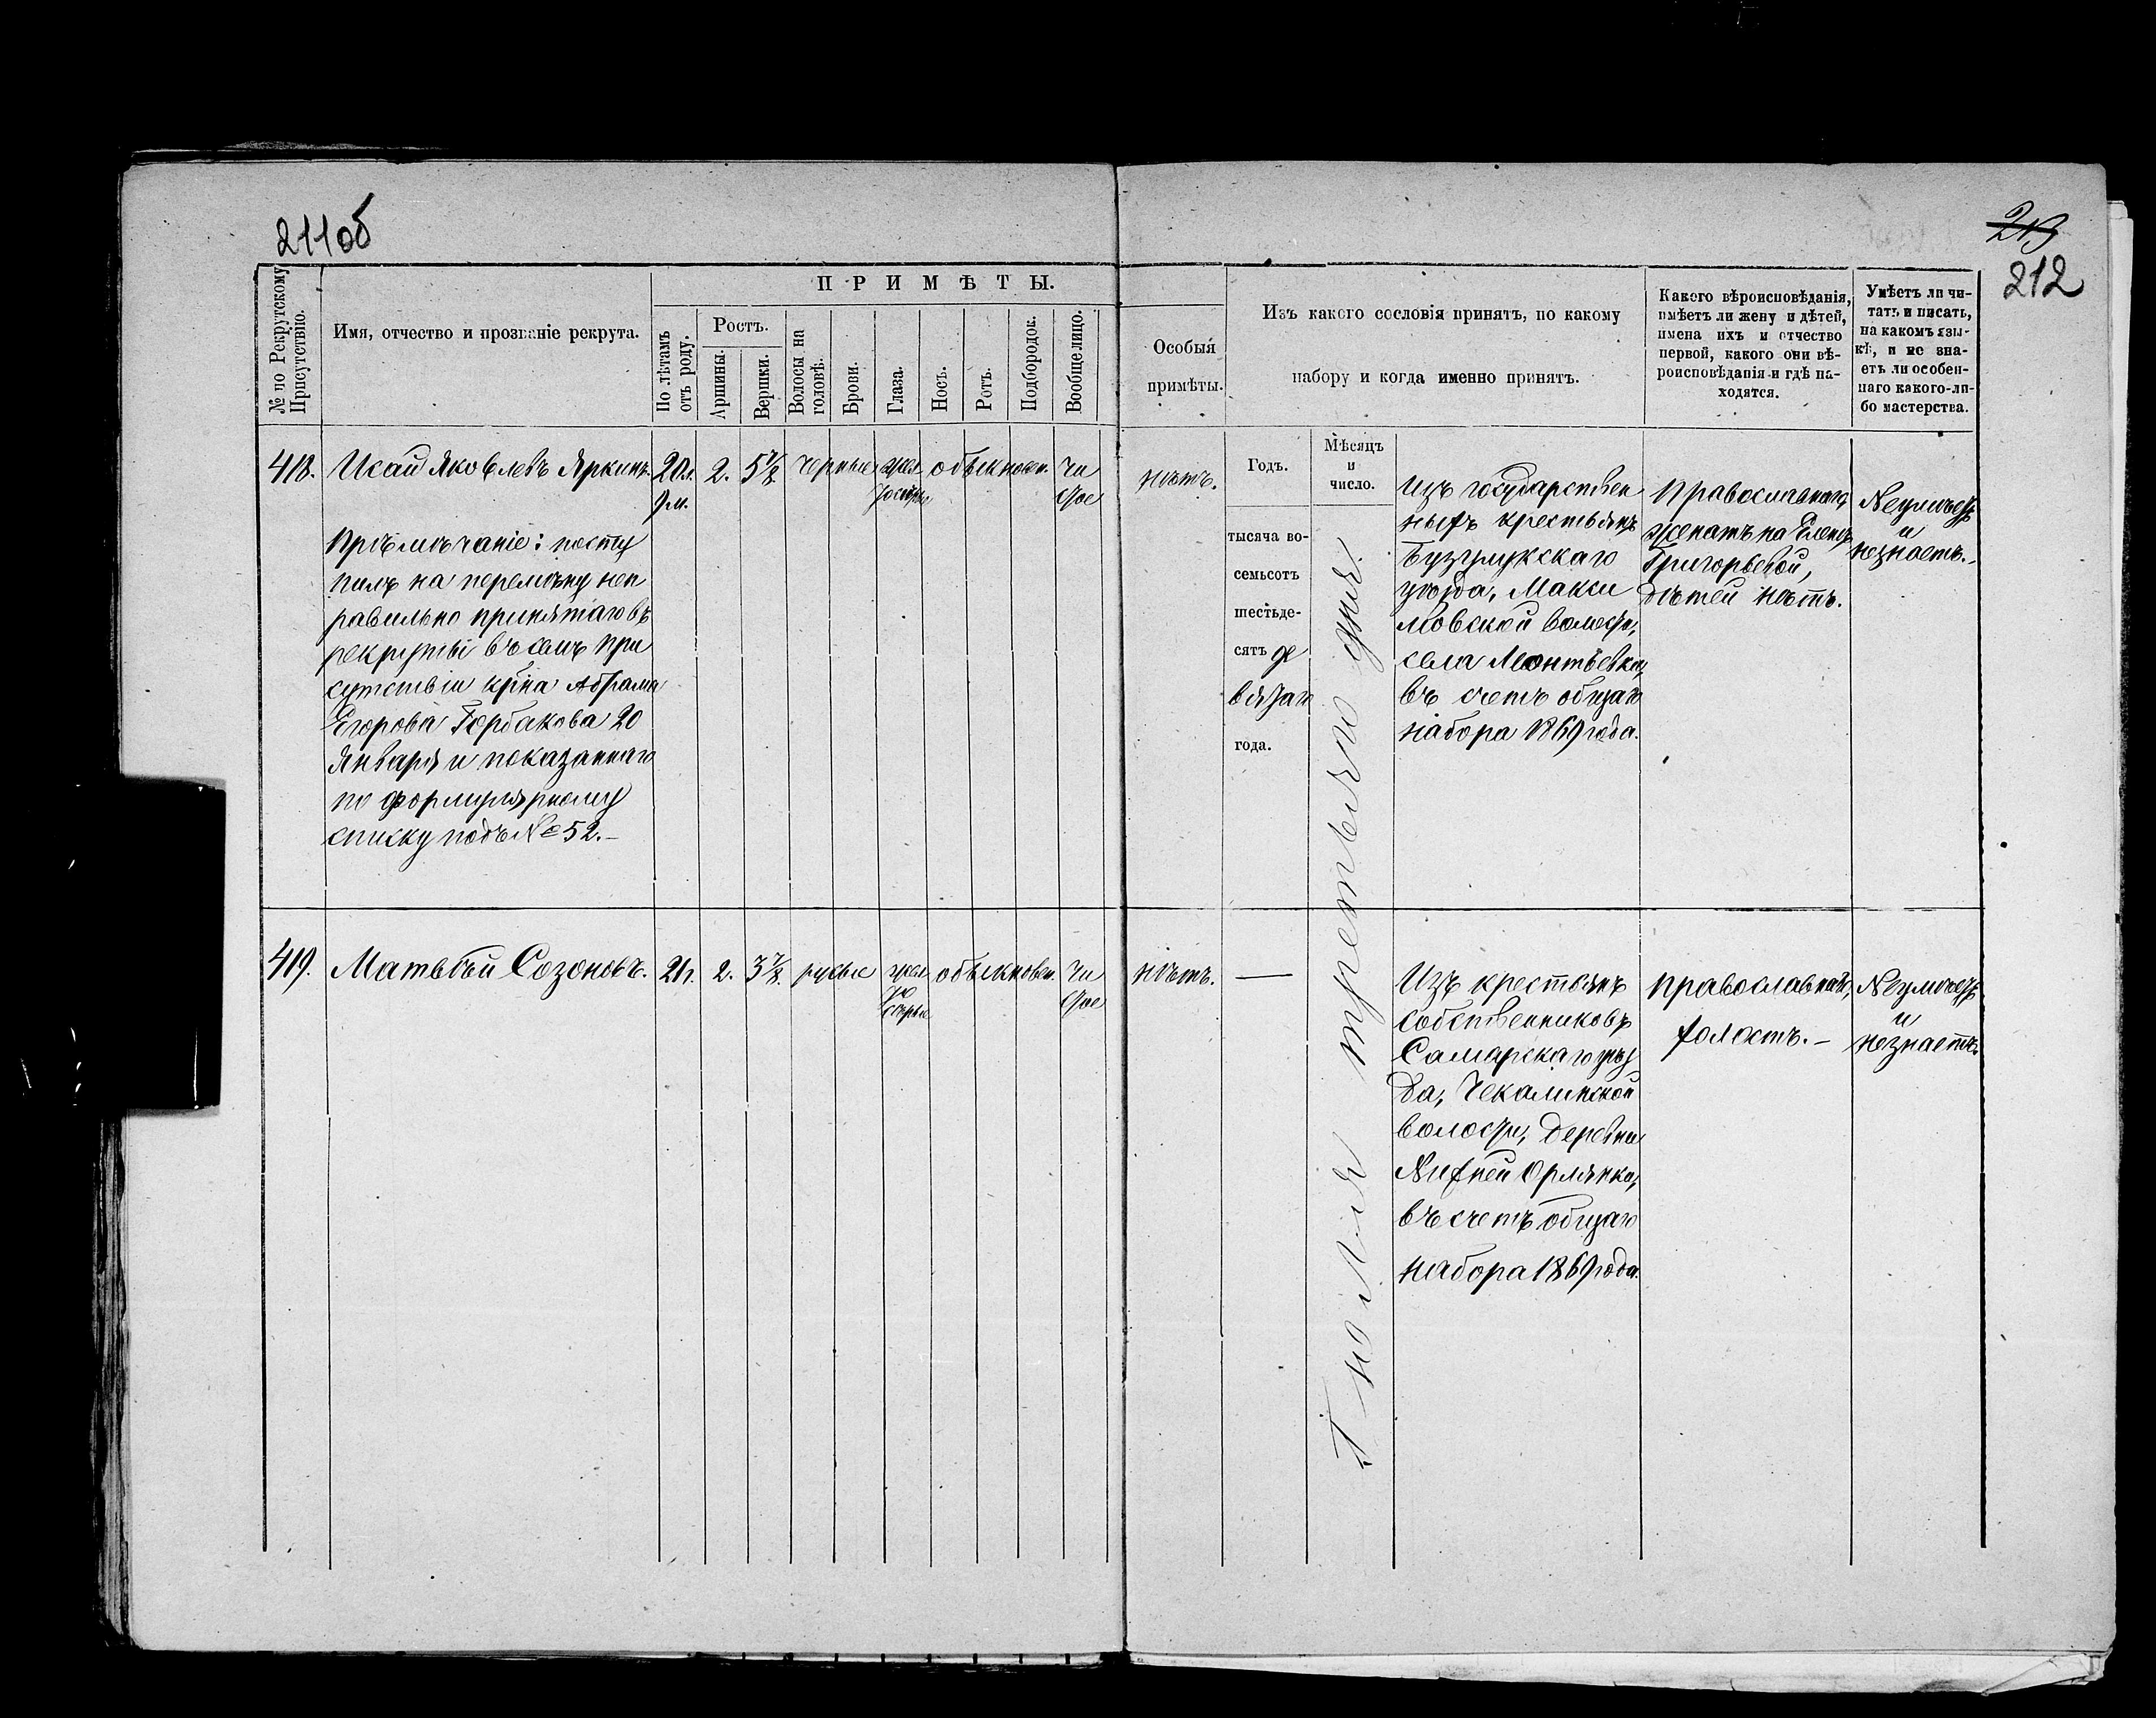 211об
213
212
№ по Рекрутскому Присутствію.
Имя, отчество и прозваніе рекрута.
ПРИМѢТЫ.
По лѣтамъ отъ роду.
Ростъ.
Аршины.
Вершки.
Волосы на головѣ.
Брови.
Глаза.
Носъ.
Ротъ.
Подбородок.
Вообще лицо.
Особыя
примѣты.
Изъ какого сословія принятъ, по какому
набору и когда именно принятъ.
Какого вѣроисповѣданія,
имѣетъ ли жену и дѣтей,
имена ихъ и отчество
первой, какого они вѣ-
роисповѣданія и гдѣ на-
ходятся.
Умѣетъ ли чи-
тать и писать,
на какомъ язы-
кѣ, и не зна-
етъ ли особен-
наго какого-ли-
бо мастерства.
418.
Исай Яковлевъ Яркинъ.
20л.
9м.
2.
5 7/8.
черные
обыкновен.
чи
стое
Примѣчаніе: посту
пилъ на перемѣну неп
равильно принятаго въ
рекруты въ семъ при
сутствіи кр-на Абрама
Егорова Горбакова 20
Января и показаннаго
по формулярному
списку подъ № 52.–
нѣтъ.
Годъ.
Мѣсяцъ
и
число.
тысяча во-
семьсотъ
шестьде-
сятъ де
вятаго
года.
Іюля третьяго дня.
Изъ государствен
ныхъ крестьянъ
Бузулукскаго
уѣзда, Макси
мовской волости,
села Леонтьевки,
въ счетъ общаго
набора 1869 года.
Православнаго,
женатъ на Еленѣ
Григорьевой,
дѣтей нѣтъ.
Неумѣетъ
и
незнаетъ.–
419.
Матвѣй Созоновъ.
21г.
2.
3 7/8.
русые
обыкновен.
чи
стое
нѣтъ.
—
Изъ крестьянъ
собственниковъ
Самарскаго уѣз
да, Чекалинской
волости, деревни
Нижней Орлянки,
въ счетъ общаго
набора 1869 года.
Православнаго,
холостъ.–
Неумѣетъ
и
незнаетъ.